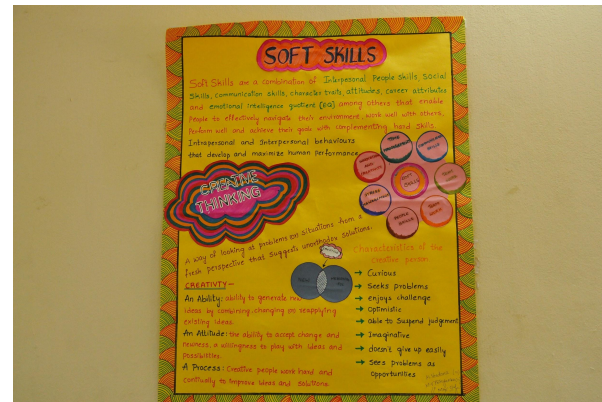 SOFT SKILLS
Soft Skills are a combination of Interpesonal People Skills, Social
Skills, communication skills, character traits, attitudes, career attributes
and emotional intelligence quotient (EQ) among others that enable
People to effectively navigate their environment, work well with others,
Perform well and achieve their goals with complementing hard skills.
Intrapersonal and Interpersonal behaviours
that develop and maximize human performance
SOFT SKILLS
CREATIVE
THINKING
A way of looking at problems on situations from a
fresh perspective that suggests unorthodox solutions.
CREATIVITY-
An Ability: ability to generate new
ideas by combining, changing on reapplying
existing ideas.
An Attitude: the ability to accept change and
newness, a willingness to play with ideas and
possibilities.
A Process: Creative people work hard and
continually to improve ideas and solutions.
Characteristics of the
creative person
→ Curious
→ Seeks problems
→ enjoys challenge
→ Optimistic
→ able to Suspend judgement
→ Imaginative
→ doesn't give up easily
→ Sees problems as
opportunities